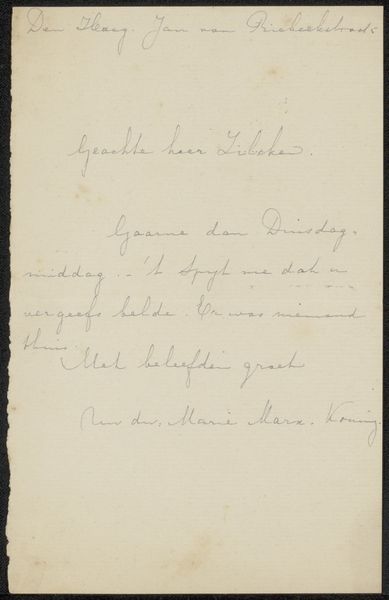 Den Haag. Jan van Riebeekstraat
Geachte heer Zilcken.
Gaarne dan Dinsdag-
middag. - 't Spijt me dat u
vergeefs belde. Er was niemand
thuis.
Met beleefden groet
Uw dw. Marie Marx-Koning.